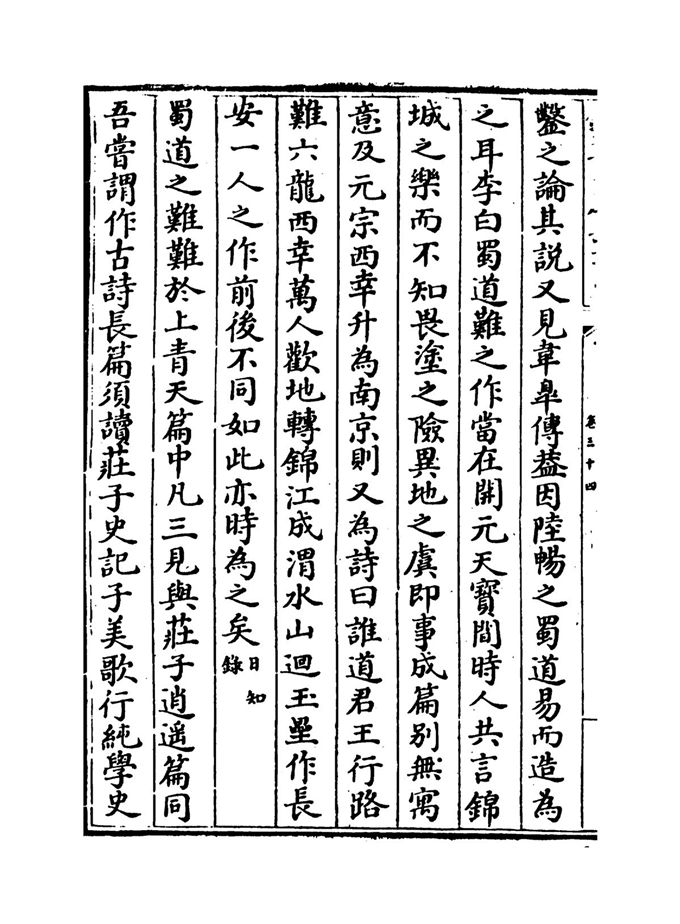 卷三十四
鑿之論其說又見韋臯傳葢因陸暢之蜀道易而造為
之耳李白蜀道難之作當在開元天寳間時人共言錦
城之樂而不知畏塗之險異地之虞即事成篇别無寓
意及元宗西幸升為南京則又為詩曰誰道君王行路
難六龍西幸萬人歡地轉錦江成渭水山迴玉壘作長
安一人之作前後不同如此亦時為之矣日知錄
蜀道之難難於上青天篇中凡三見與莊子逍遥篇同
吾嘗謂作古詩長篇須讀莊子史記子美歌行純學史